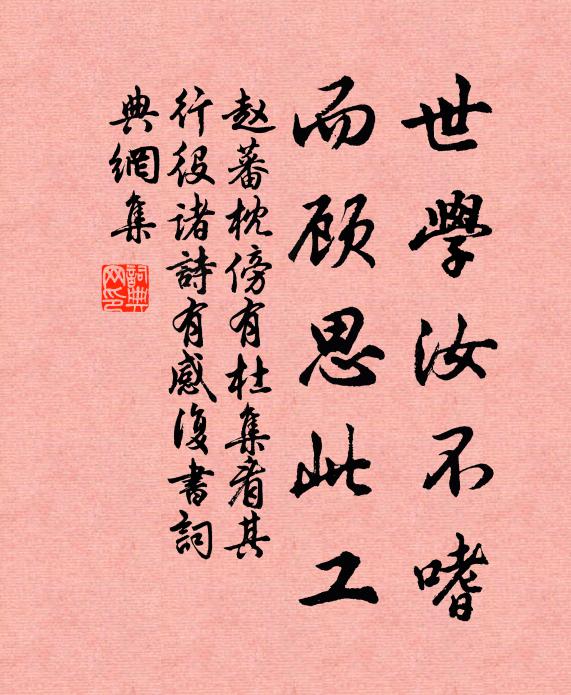 世學汝不嗜
而顾思此工
赵蕃枕傍有杜集看其
行役诸詩有感復書詞
典網集
詞典
网印